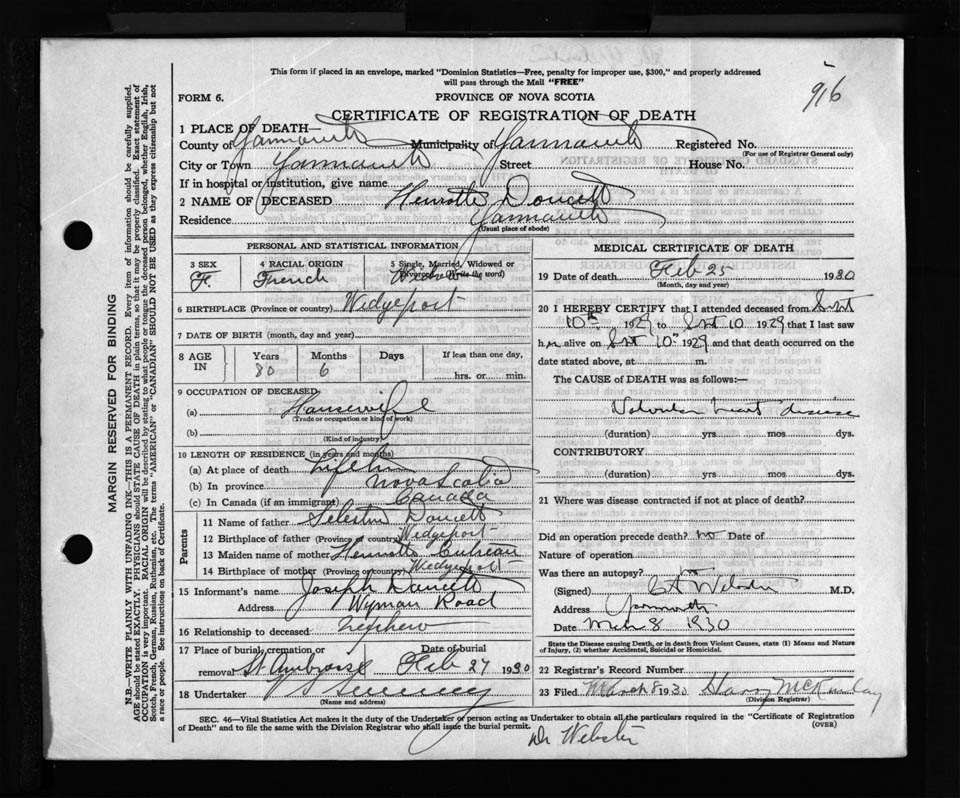 916
This form if placed in an envelope, marked "Dominion Statistics—Free, penalty for improper use, $300," and properly addressed
will pass through the Mail "FREE"
FORM 6.
PROVINCE OF NOVA SCOTIA
CERTIFICATE OF REGISTRATION OF DEATH
1 PLACE OF DEATH—
County of Yarmouth Municipality of Yarmouth Registered No.
(For use of Registrar General only)
City or Town Yarmouth Street House No.
If in hospital or institution, give name
2 NAME OF DECEASED Doucett
Residence Yarmouth
(Usual place of abode)
MARGIN RESERVED FOR BINDING
N.B.—WRITE PLAINLY WITH UNFADING INK—THIS IS A PERMANENT RECORD. Every item of information should be carefully supplied.
AGE should be stated EXACTLY. PHYSICIANS should STATE CAUSE OF DEATH in plain terms, so that it may be properly classified. Exact statement of
OCCUPATION is very important. RACIAL ORIGIN will be described by stating to what people or tongue the deceased person belonged, whether English, Irish,
Scotch, French, German, Russian, Ruthenian, etc. The terms "AMERICAN" or "CANADIAN" SHOULD NOT BE USED as they express citizenship but not
a race or people. See instructions on back of Certificate.
PERSONAL AND STATISTICAL INFORMATION
3 SEX
F.
4 RACIAL ORIGIN
French
5 Single, Married, Widowed or
Divorced (Write the word)
6 BIRTHPLACE (Province or country) Wedgeport
7 DATE OF BIRTH (month, day and year)
8 AGE IN
Years Months Days If less than one day,
80 6 hrs. or min.
9 OCCUPATION OF DECEASED
(a) Housewife
(Trade or occupation or kind of work)
(b)
(Kind of industry)
10 LENGTH OF RESIDENCE (in years and months)
(a) At place of death
(b) In province Nova Scotia
(c) In Canada (if an immigrant) Canada
Parents
11 Name of father Doucett
12 Birthplace of father (Province or country) Wedgeport
13 Maiden name of mother
14 Birthplace of mother (Province or country) Wedgeport
15 Informant's name Joseph Doucett
Address Wyman Road
16 Relationship to deceased nephew
17 Place of burial, cremation or Date of burial
removal St Ambroise Feb 27 1930
18 Undertaker Sweeney
(Name and address)
MEDICAL CERTIFICATE OF DEATH
19 Date of death Feb 25 1930
(Month, day and year)
20 I HEREBY CERTIFY that I attended deceased from Sept
10th 1929 to Sept 10 1929 that I last saw
h er alive on Sept 10th 1929 and that death occurred on the
date stated above, at m.
The CAUSE OF DEATH was as follows:—
Valvular heart disease
(duration) yrs mos dys.
CONTRIBUTORY
(duration) yrs mos dys.
21 Where was disease contracted if not at place of death?
Did an operation precede death? no Date of
Nature of operation
Was there an autopsy? no
(Signed) Webster M.D.
Address Yarmouth
Date Mch 8 1930
State the Disease causing Death, or in death from Violent Causes, state (1) Means and Nature
of Injury, (2) whether Accidental, Suicidal or Homicidal.
22 Registrar's Record Number
23 Filed March 8 1930 Harry McKinlay
(Division Registrar)
SEC. 46—Vital Statistics Act makes it the duty of the Undertaker or person acting as Undertaker to obtain all the particulars required in the "Certificate of Registration
of Death" and to file the same with the Division Registrar who shall issue the burial permit.
(OVER)
Dr Webster